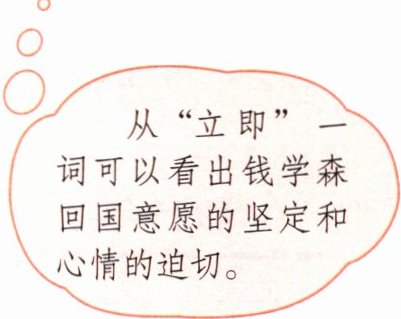 从“立即”一
词可以看出钱学森
回国意愿的坚定和
心情的迫切。